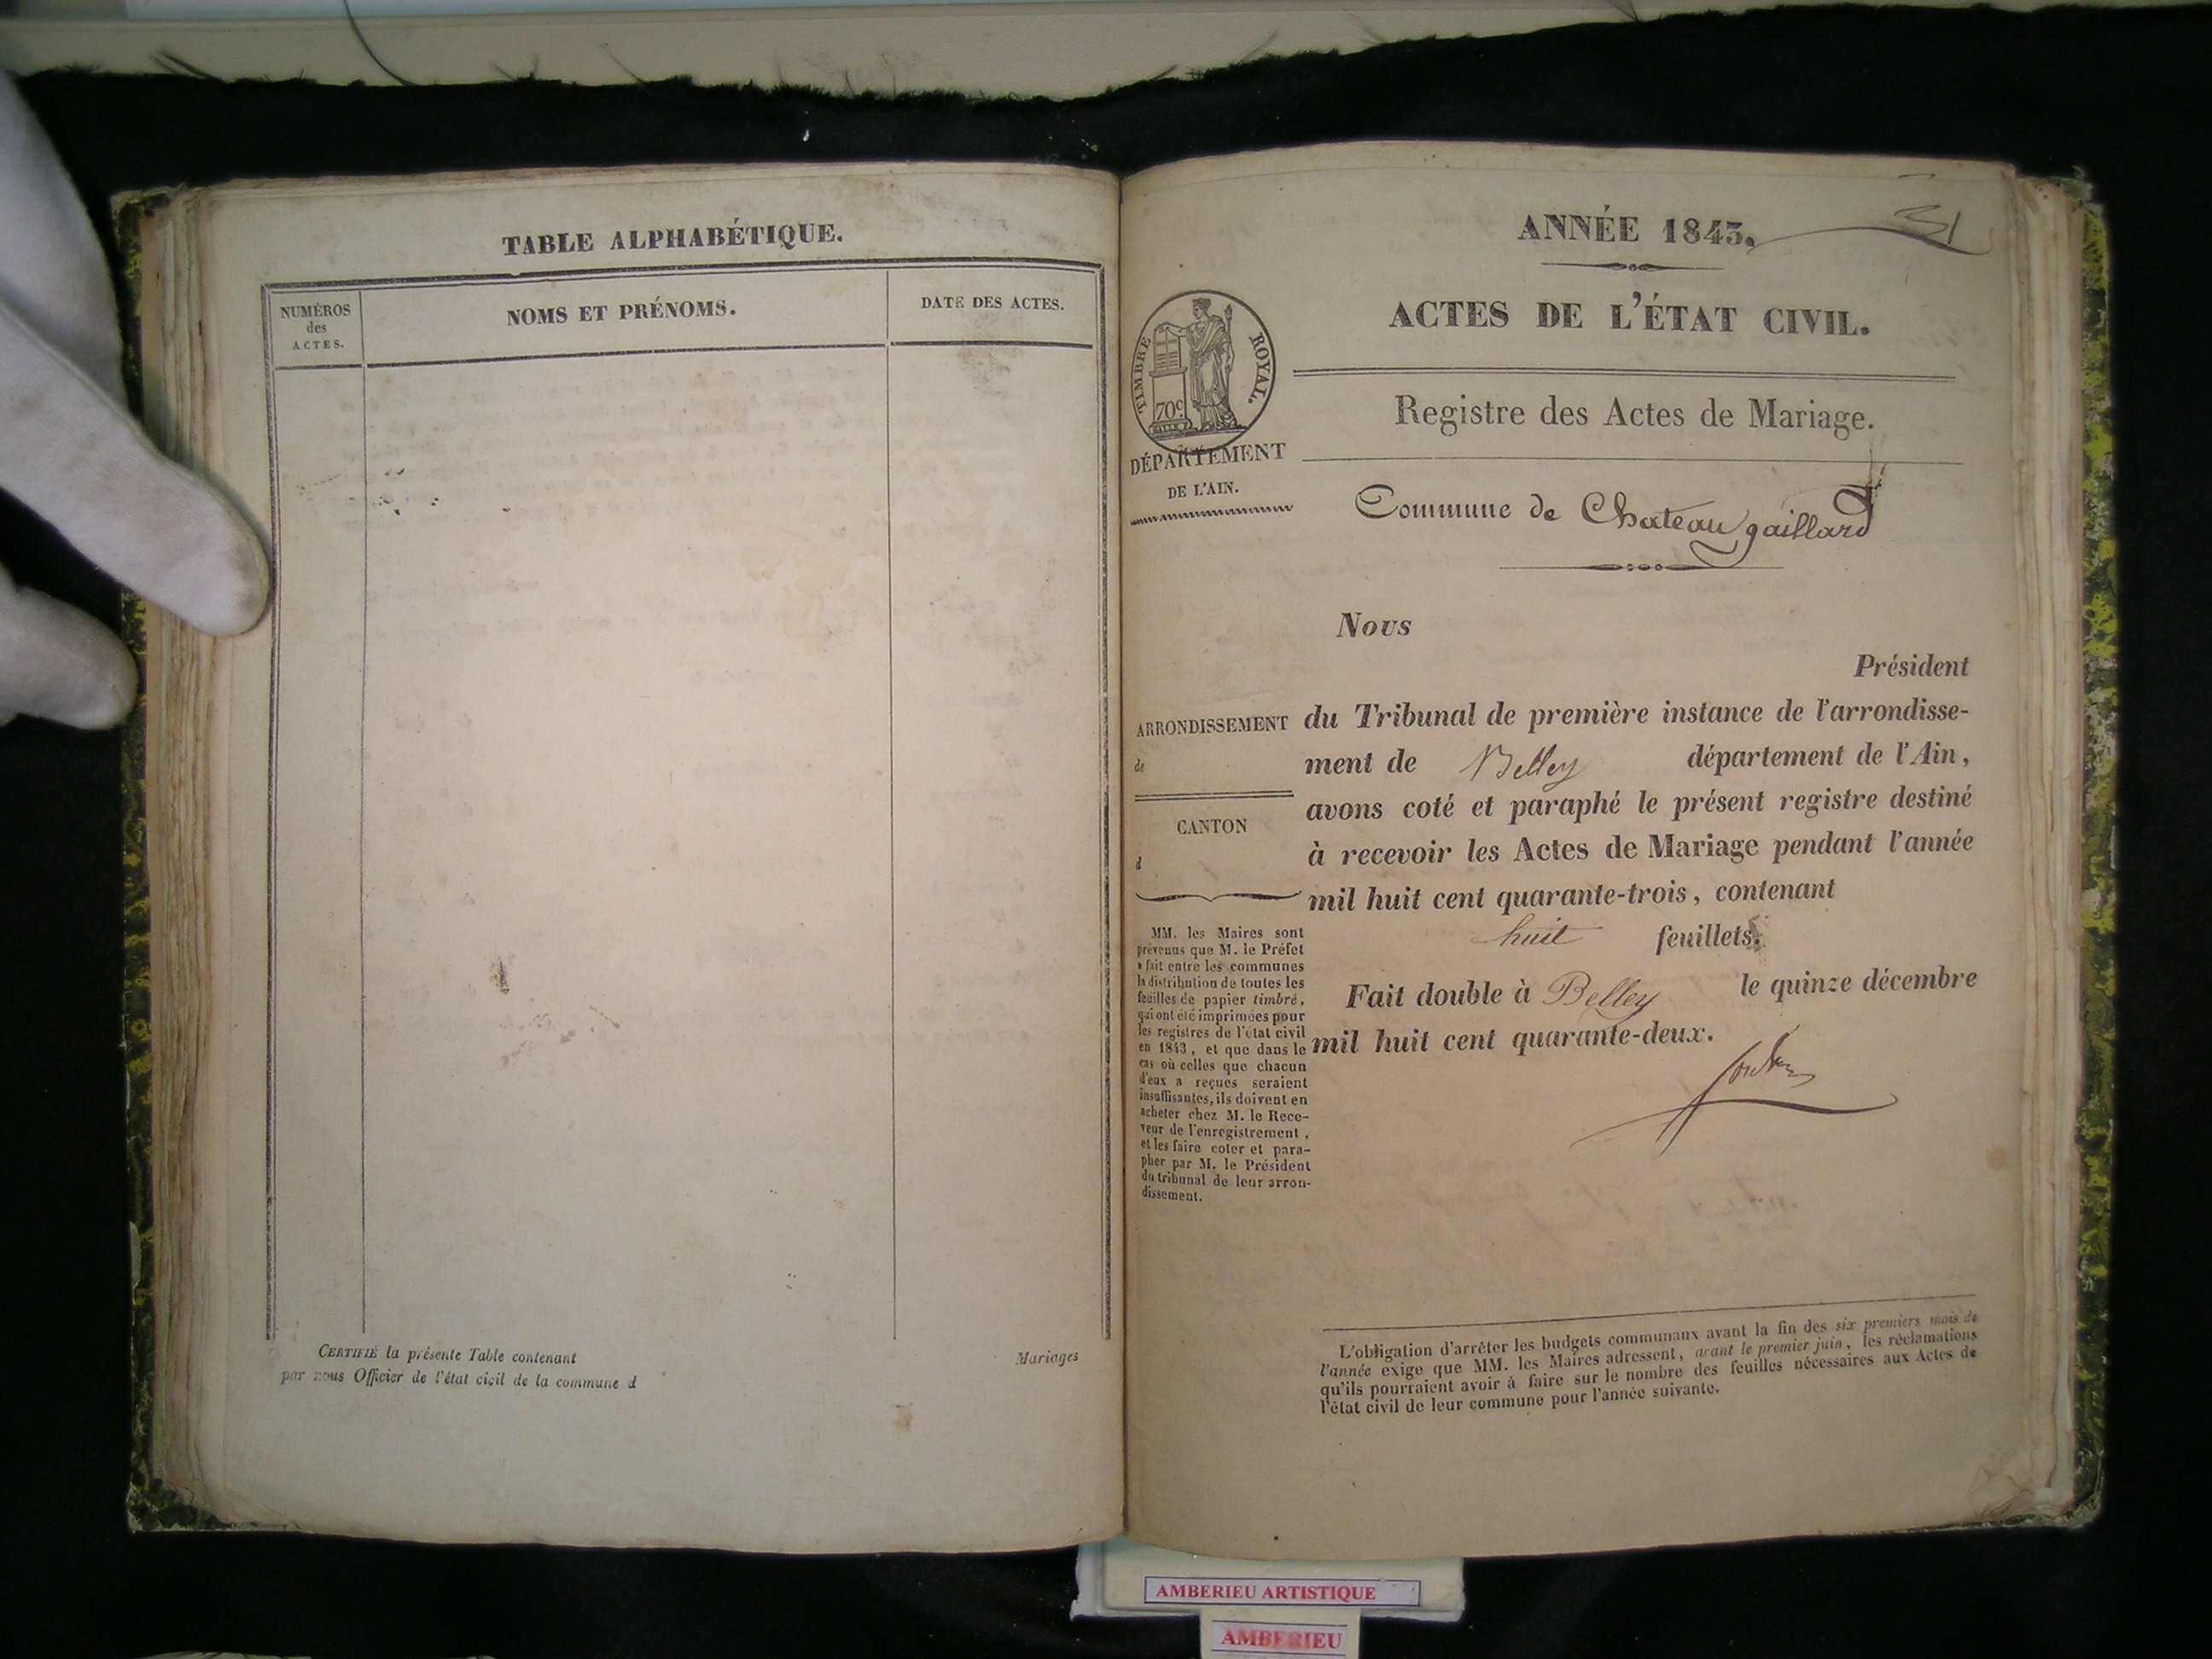 TABLE ALPHABÉTIQUE.
NUMÉROS
des
ACTES.
NOMS ET PRÉNOMS.
DATE DES ACTES.
CERTIFIÉ la présente Table contenant
par nous Officier de l'état civil de la commune d
Mariages
ANNÉE 1843.
31
ACTES DE L'ÉTAT CIVIL.
TIMBRE ROYAL.
70c
DÉPARTEMENT
DE L'AIN.
Registre des Actes de Mariage.
Commune de Chateau gaillard
Nous
Président
ARRONDISSEMENT
de
CANTON
d
du Tribunal de première instance de l'arrondisse-
ment de Belley département de l'Ain,
avons coté et paraphé le présent registre destiné
à recevoir les Actes de Mariage pendant l'année
mil huit cent quarante-trois, contenant
huit feuillets.
Fait double à Belley le quinze décembre
mil huit cent quarante-deux.
MM. les Maires sont
prévenus que M. le Préfet
a fait entre les communes
la distribution de toutes les
feuilles de papier timbré,
qui ont été imprimées pour
les registres de l'état civil
en 1843, et que dans le
cas où celles que chacun
d'eux a reçues seraient
insuffisantes, ils doivent en
acheter chez M. le Rece-
veur de l'enregistrement,
et les faire coter et para-
pher par M. le Président
du tribunal de leur arron-
dissement.
L'obligation d'arrêter les budgets communaux avant la fin des six premiers mois de
l'année exige que MM. les Maires adressent, avant le premier juin, les réclamations
qu'ils pourraient avoir à faire sur le nombre des feuilles nécessaires aux Actes de
l'état civil de leur commune pour l'année suivante.
AMBERIEU ARTISTIQUE
AMBERIEU